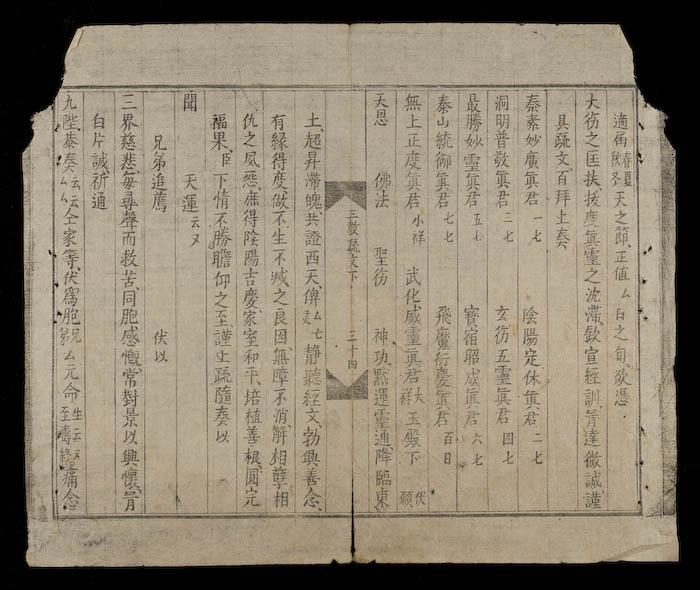 適屆春夏秋冬天之節、正值厶日之旬、欲憑
大衜之匡扶、拔度眞靈之沈滯、欽宣經訓、肻達微誠、謹
具疏文、百拜上奏
秦素妙廣眞君 一七 陰陽定休眞君 二七
洞明普敬眞君 三七 玄衜五靈眞君 四七
最勝妙靈眞君 五七 寳宿昭成眞君 六七
泰山統御眞君 七七 飛魔衍慶眞君 百日
無上正度眞君 小祥 武化威靈眞君 大祥 玉陛下 伏願
天恩 佛法 聖衜 神功默運靈通、降臨東
三教疏文下 三十四
土、超昇滯魄、共證西天、俾厶七靜聽經文、勃興善念、
有緣得度、做不生不滅之良因、無障不消、解相孽相
仇之風惡、庶得陰陽吉慶、家室和平、培植善根、圓完
福果、臣下情不勝瞻仰之至、謹疏隨奏以
聞 天運云又
兄弟追薦 伏以
三界慈悲、每尋聲而救苦、同胞感慨、常對景以興懷、肻
白片誠、祈通
九陛、恭奏云云厶厶仝家等、伏爲胞兄弟厶元命生云又至壽終、痛念